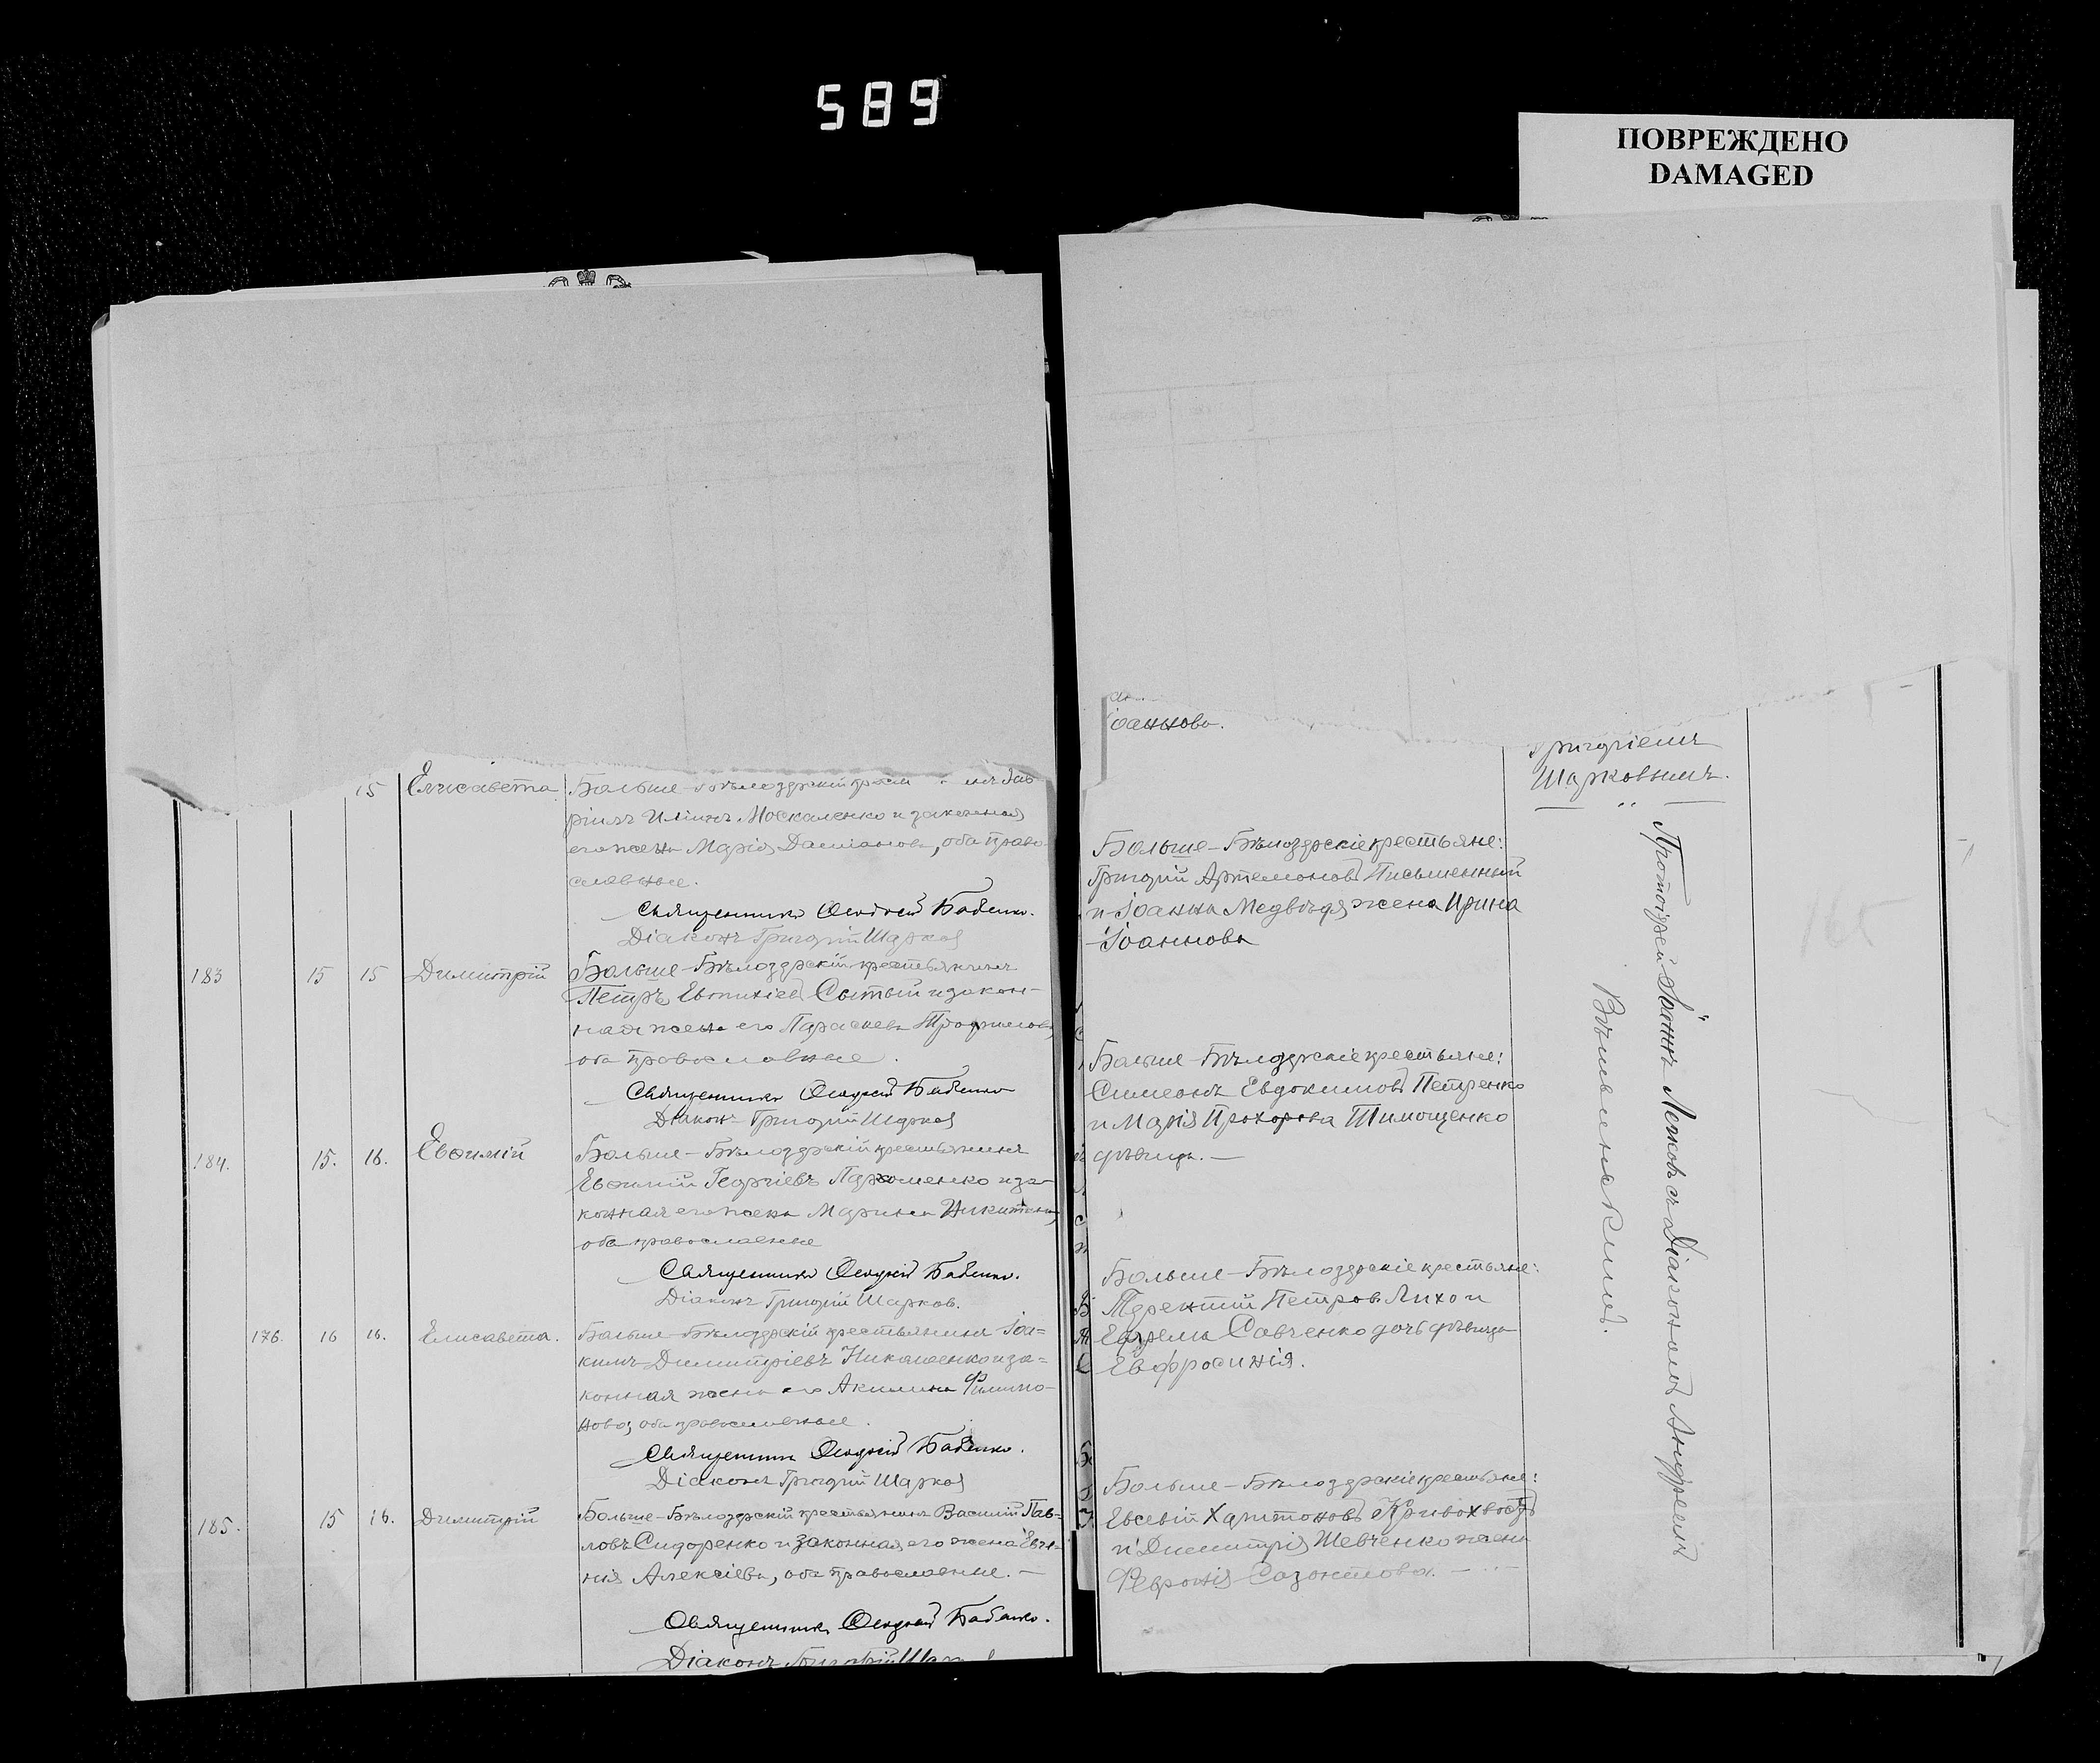 589
ПОВРЕЖДЕНО
DAMAGED
15 Елисавета Больше-Бѣлозерскій
ріилъ Иліинъ Москаленко и законная
его жена Марія Даміанова, оба право-
славные.
Священникъ Бабенко.
Діаконъ Григорій Шарковъ
183 15 15 Димитрій Больше-Бѣлозерскій крестьянинъ
Петръ Евтихіевъ Сытый и закон-
ная жена его Параскева Трофимова,
оба православные.
Священникъ Бабенко
Діаконъ Григорій Шарковъ
184. 15. 16. Евѳимій Больше-Бѣлозерскій крестьянинъ
Евѳимій Георгіевъ Пархоменко и за-
конная его жена Марина Никитина,
оба православные
Священникъ Бабенко.
Діаконъ Григорій Шарков.
176. 16 16. Елисавета. Больше-Бѣлозерскій крестьянинъ Іоа=
кимъ Димитріевъ и за=
конная жена его Акилина Филимо-
нова; оба православные.
Священникъ Бабенко.
Діаконъ Григорій Шарковъ
185. 15 16. Димитрій Больше-Бѣлозерскій крестьянинъ Василій Пав=
ловъ Сидоренко и законная его жена Евге=
нія Алексіева, оба православные. —
Священникъ Бабенко.
Діаконъ Григорій
оаннова.
Григоріемъ
Шарковымъ.
Больше-Бѣлозерскіе крестьяне:
Григорій Артемоновъ Письменный
и Іоанна Медвѣдя жена Ирина
Іоаннова
Больше-Бѣлозерскіе крестьяне:
Симеонъ Евдокимовъ Петренко
и Марія Прохорова Тимощенко
дѣвица. —
Больше-Бѣлозерскіе крестьяне:
Терентій Петров Лихо и
Ефрема Савченко дочь дѣвица
Евфросинія.
Больше-Бѣлозерскіе крестьяне:
Евсевій Харитоновъ Кривохвостъ
и Димитрія Шевченко жена
Феврония Созонтова. —
Протоіерей Іоаннъ съ Діакономъ Андреемъ